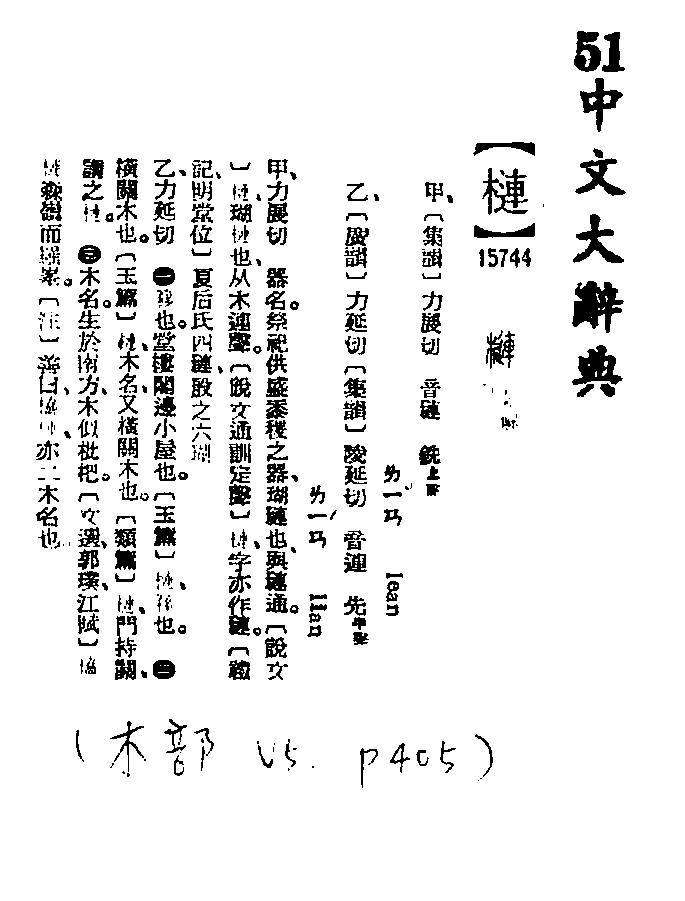 51中文大辭典
【槤】
15744
甲、〔集韻〕力展切 音璉 銑上聲
ㄌㄧㄢˇ lean
乙、〔廣韻〕力延切〔集韻〕陵延切 音連 先平聲
ㄌㄧㄢˊ lian
甲、力展切 器名。祭祀供盛黍稷之器、瑚璉也、與璉通。〔說文
〕槤、瑚槤也、从木連聲。〔說文通訓定聲〕槤、字亦作璉。〔禮
記、明堂位〕夏后氏四璉、殷之六瑚
乙、力延切 ㊀簃也。堂樓閣邊小屋也。〔玉篇〕槤、簃也。㊁
橫關木也。〔玉篇〕槤、木名、又橫關木也。〔類篇〕槤、門持關、
謂之槤。㊂木名、生於南方、木似枇杷。〔文選、郭璞、江賦〕
森嶺而羅峯。〔注〕亦二木名也
(木部 V5. P405)